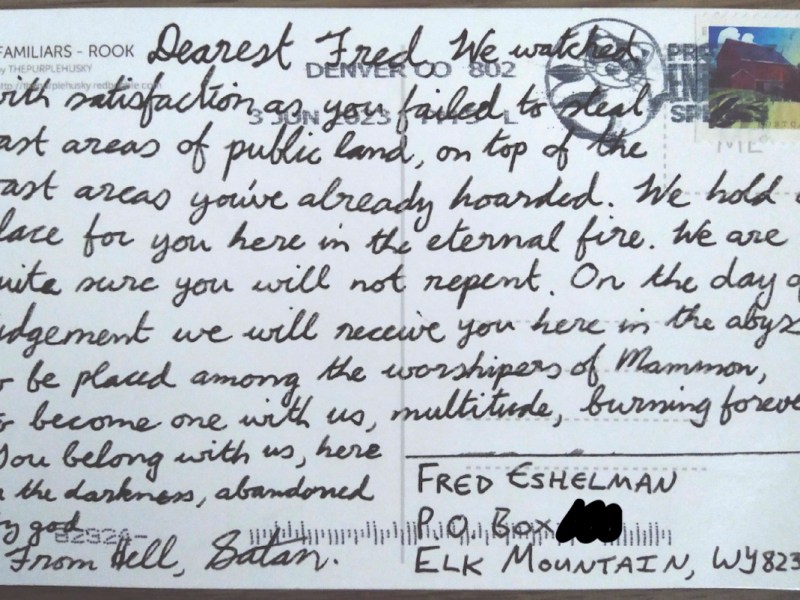 FAMILIARS - ROOK
by THEPURPLEHUSKY
Dearest Fred, We watched
DENVER CO 802
3 JUN 2023
with satisfaction as you failed to steal
vast areas of public land, on top of the
vast areas you've already hoarded. We hold a
place for you here in the eternal fire. We are
quite sure you will not repent. On the day of
judgement we will receive you here in the abyz
to be placed among the worshipers of Mammon,
to become one with us, multitude, burning forever
You belong with us, here
in the darkness, abandoned
by god
From Hell, Satan.
FRED ESHELMAN
P.O. BOX
ELK MOUNTAIN, WY 823